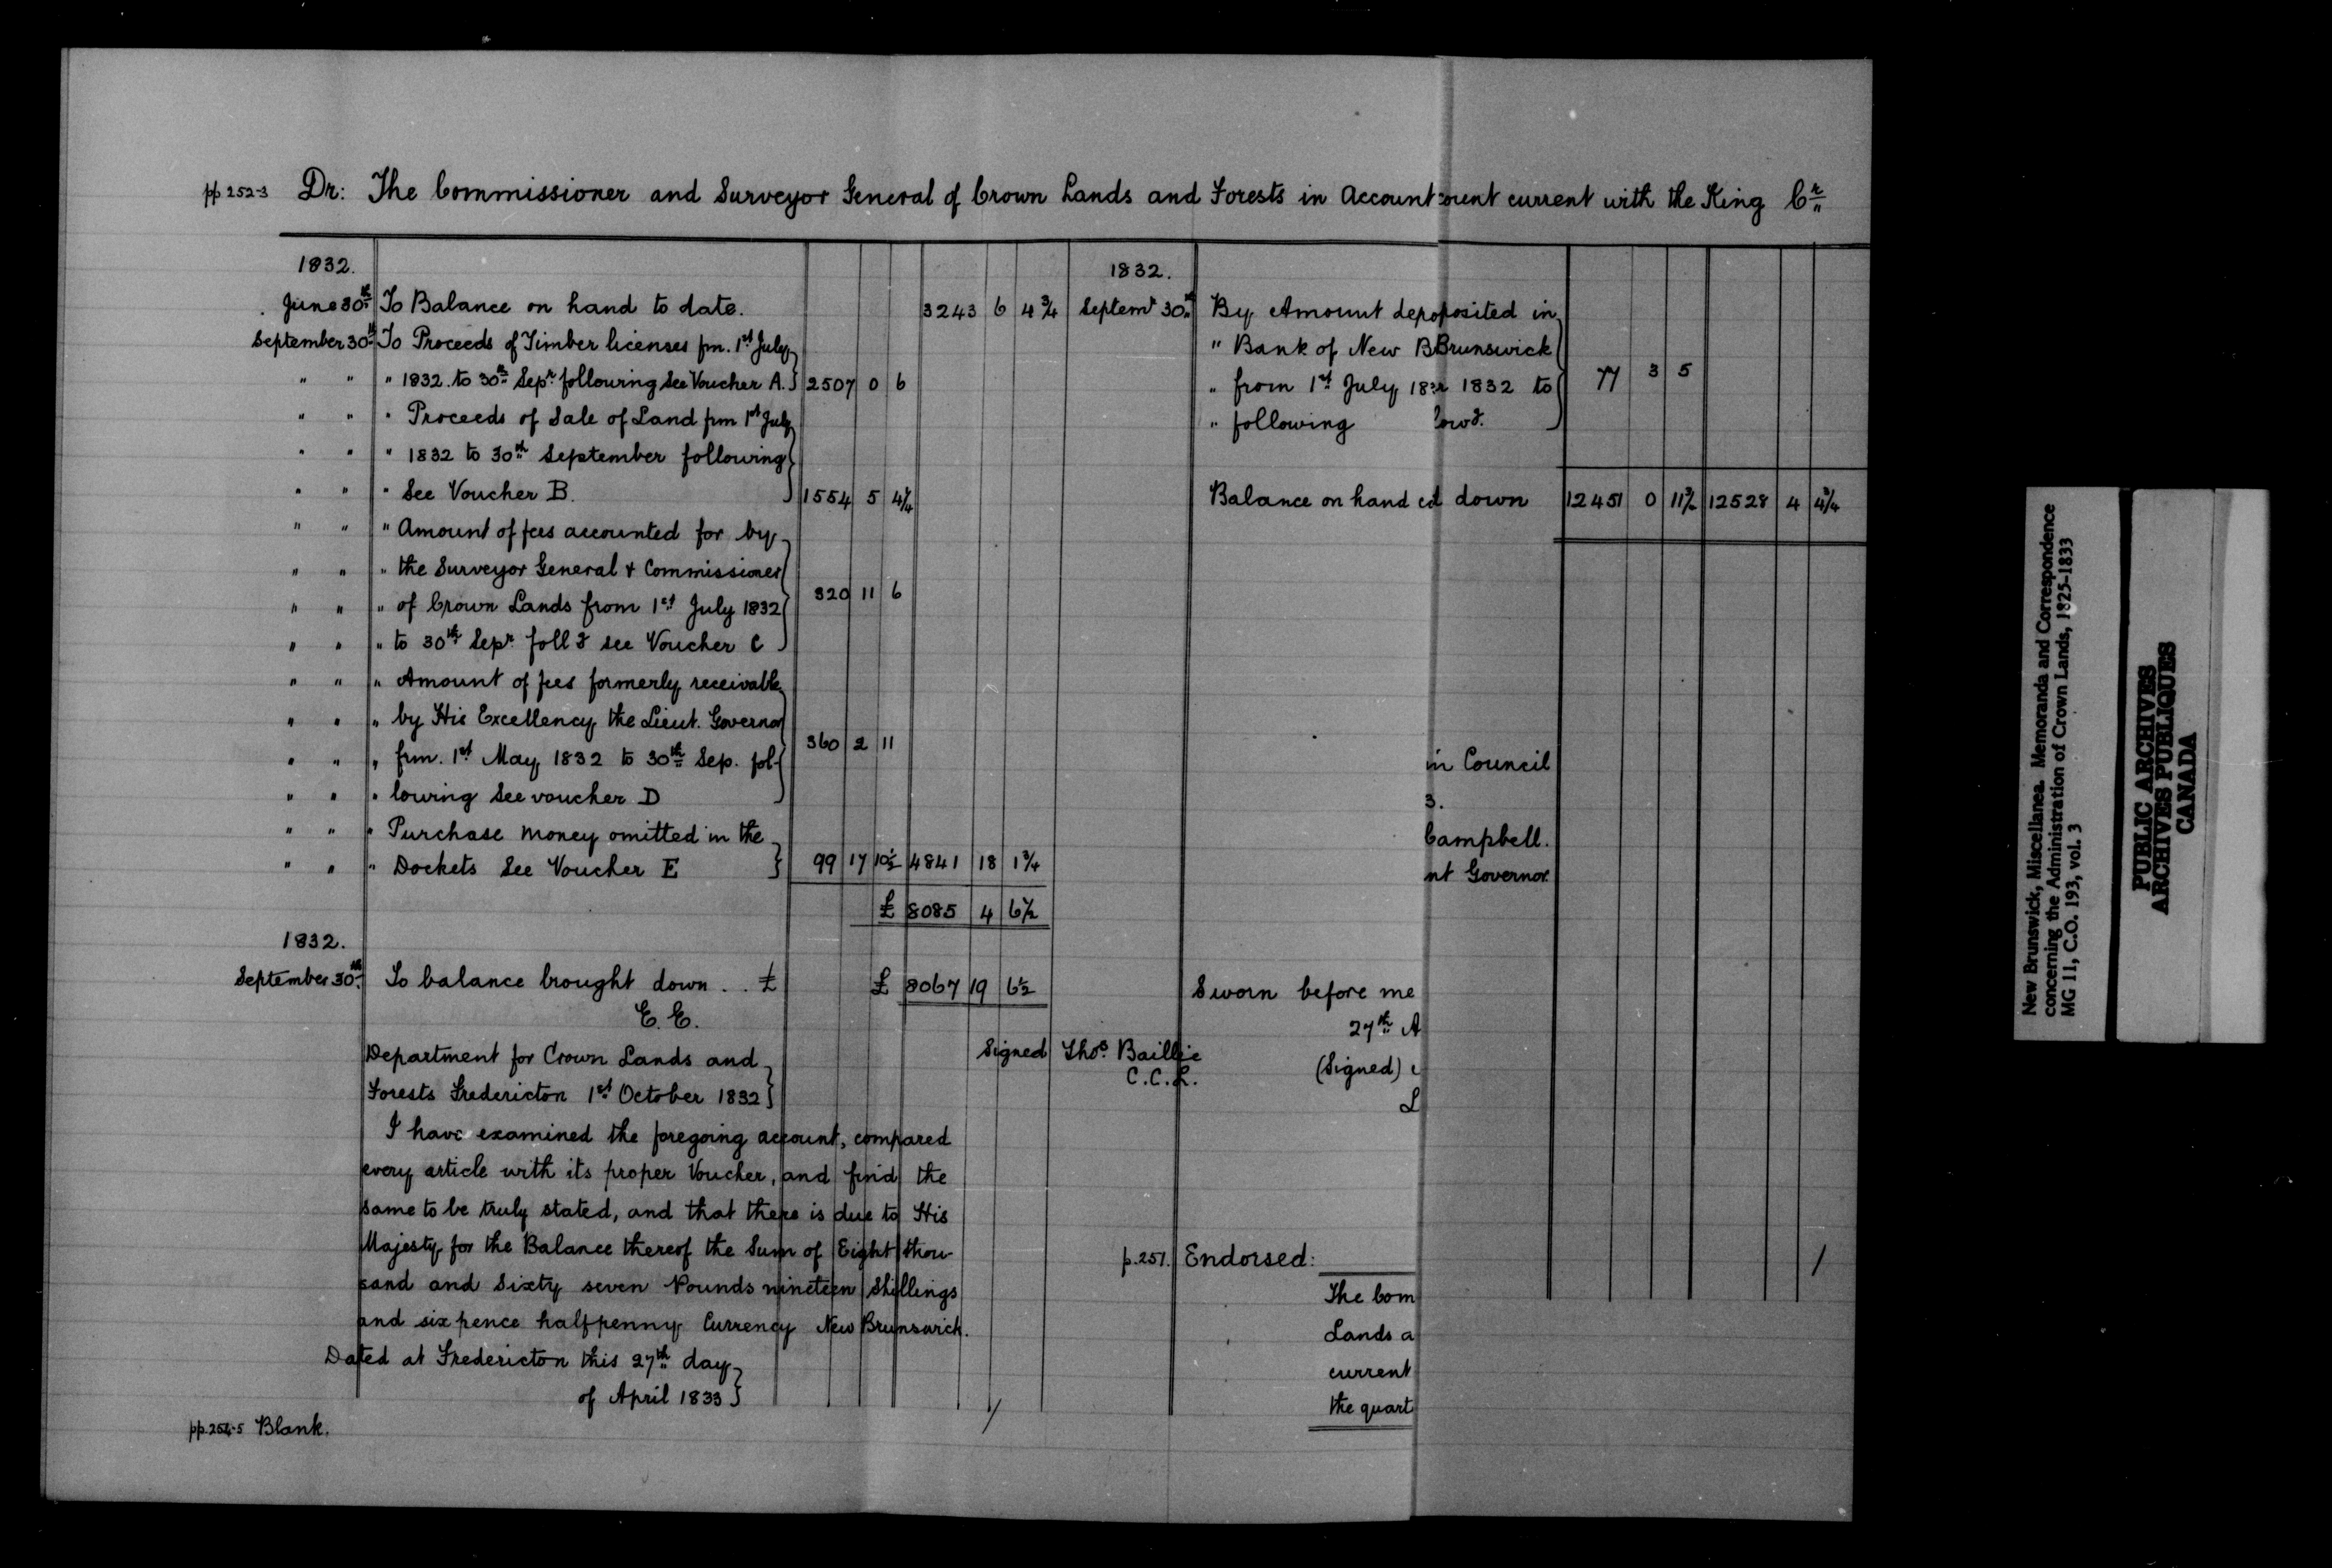 pp 252-3 Dr: The Commissioner and Surveyor General of Crown Lands and Forests in Account ount current with the King Cr
1832.
June 30th To Balance on hand to date. 3243 6 4 3/4
September 30th To Proceeds of Timber licenses fm. 1st July
" " " 1832 to 30th Sepr following See Voucher A. 2507 0 6
" " " Proceeds of Sale of Land fm 1st July
" " " 1832 to 30th September following
" " " See Voucher B. 1554 5 4 1/4
" " " Amount of fees accounted for by
" " " the Surveyor General & Commissioner
" " " of Crown Lands from 1st July 1832 320 11 6
" " " to 30th Sepr. foll g see Voucher C
" " " Amount of fees formerly receivable
" " " by His Excellency the Lieut. Governor
" " " frm. 1st May 1832 to 30th Sep. fol- 360 2 11
" " " lowing See voucher D
" " " Purchase money omitted in the
" " " Dockets See Voucher E 99 17 10 1/2 4841 18 1 3/4
£ 8085 4 6 1/2
1832.
September 30th To balance brought down . . £ £ 8067 19 6 1/2
E. E.
Department for Crown Lands and
Forests Fredericton 1st October 1832
Signed Thos. Baillie
C.C.L.
I have examined the foregoing account, compared
every article with its proper Voucher, and find the
same to be truly stated, and that there is due to His
Majesty for the Balance thereof the Sum of Eight thou-
sand and Sixty seven Pounds nineteen Shillings
and six pence halfpenny Currency New Brunswick.
Dated at Fredericton this 27th day
of April 1833
pp. 254-5 Blank.
1832.
Septemr 30th By Amount depo posited in
" Bank of New B Brunswick
" from 1st July 183 r 1832 to 77 3 5
" following low g.
Balance on hand c d down 12451 0 11 3/4 12528 4 4 3/4
in Council
3.
Campbell.
nt Governor
Sworn before me
27th A
(Signed)
L
p. 251. Endorsed:
The Com
Lands a
current
the quart
New Brunswick, Miscellanea. Memoranda and Correspondence
concerning the Administration of Crown Lands, 1825-1833
MG 11, C.O. 193, vol. 3
PUBLIC ARCHIVES
ARCHIVES PUBLIQUES
CANADA